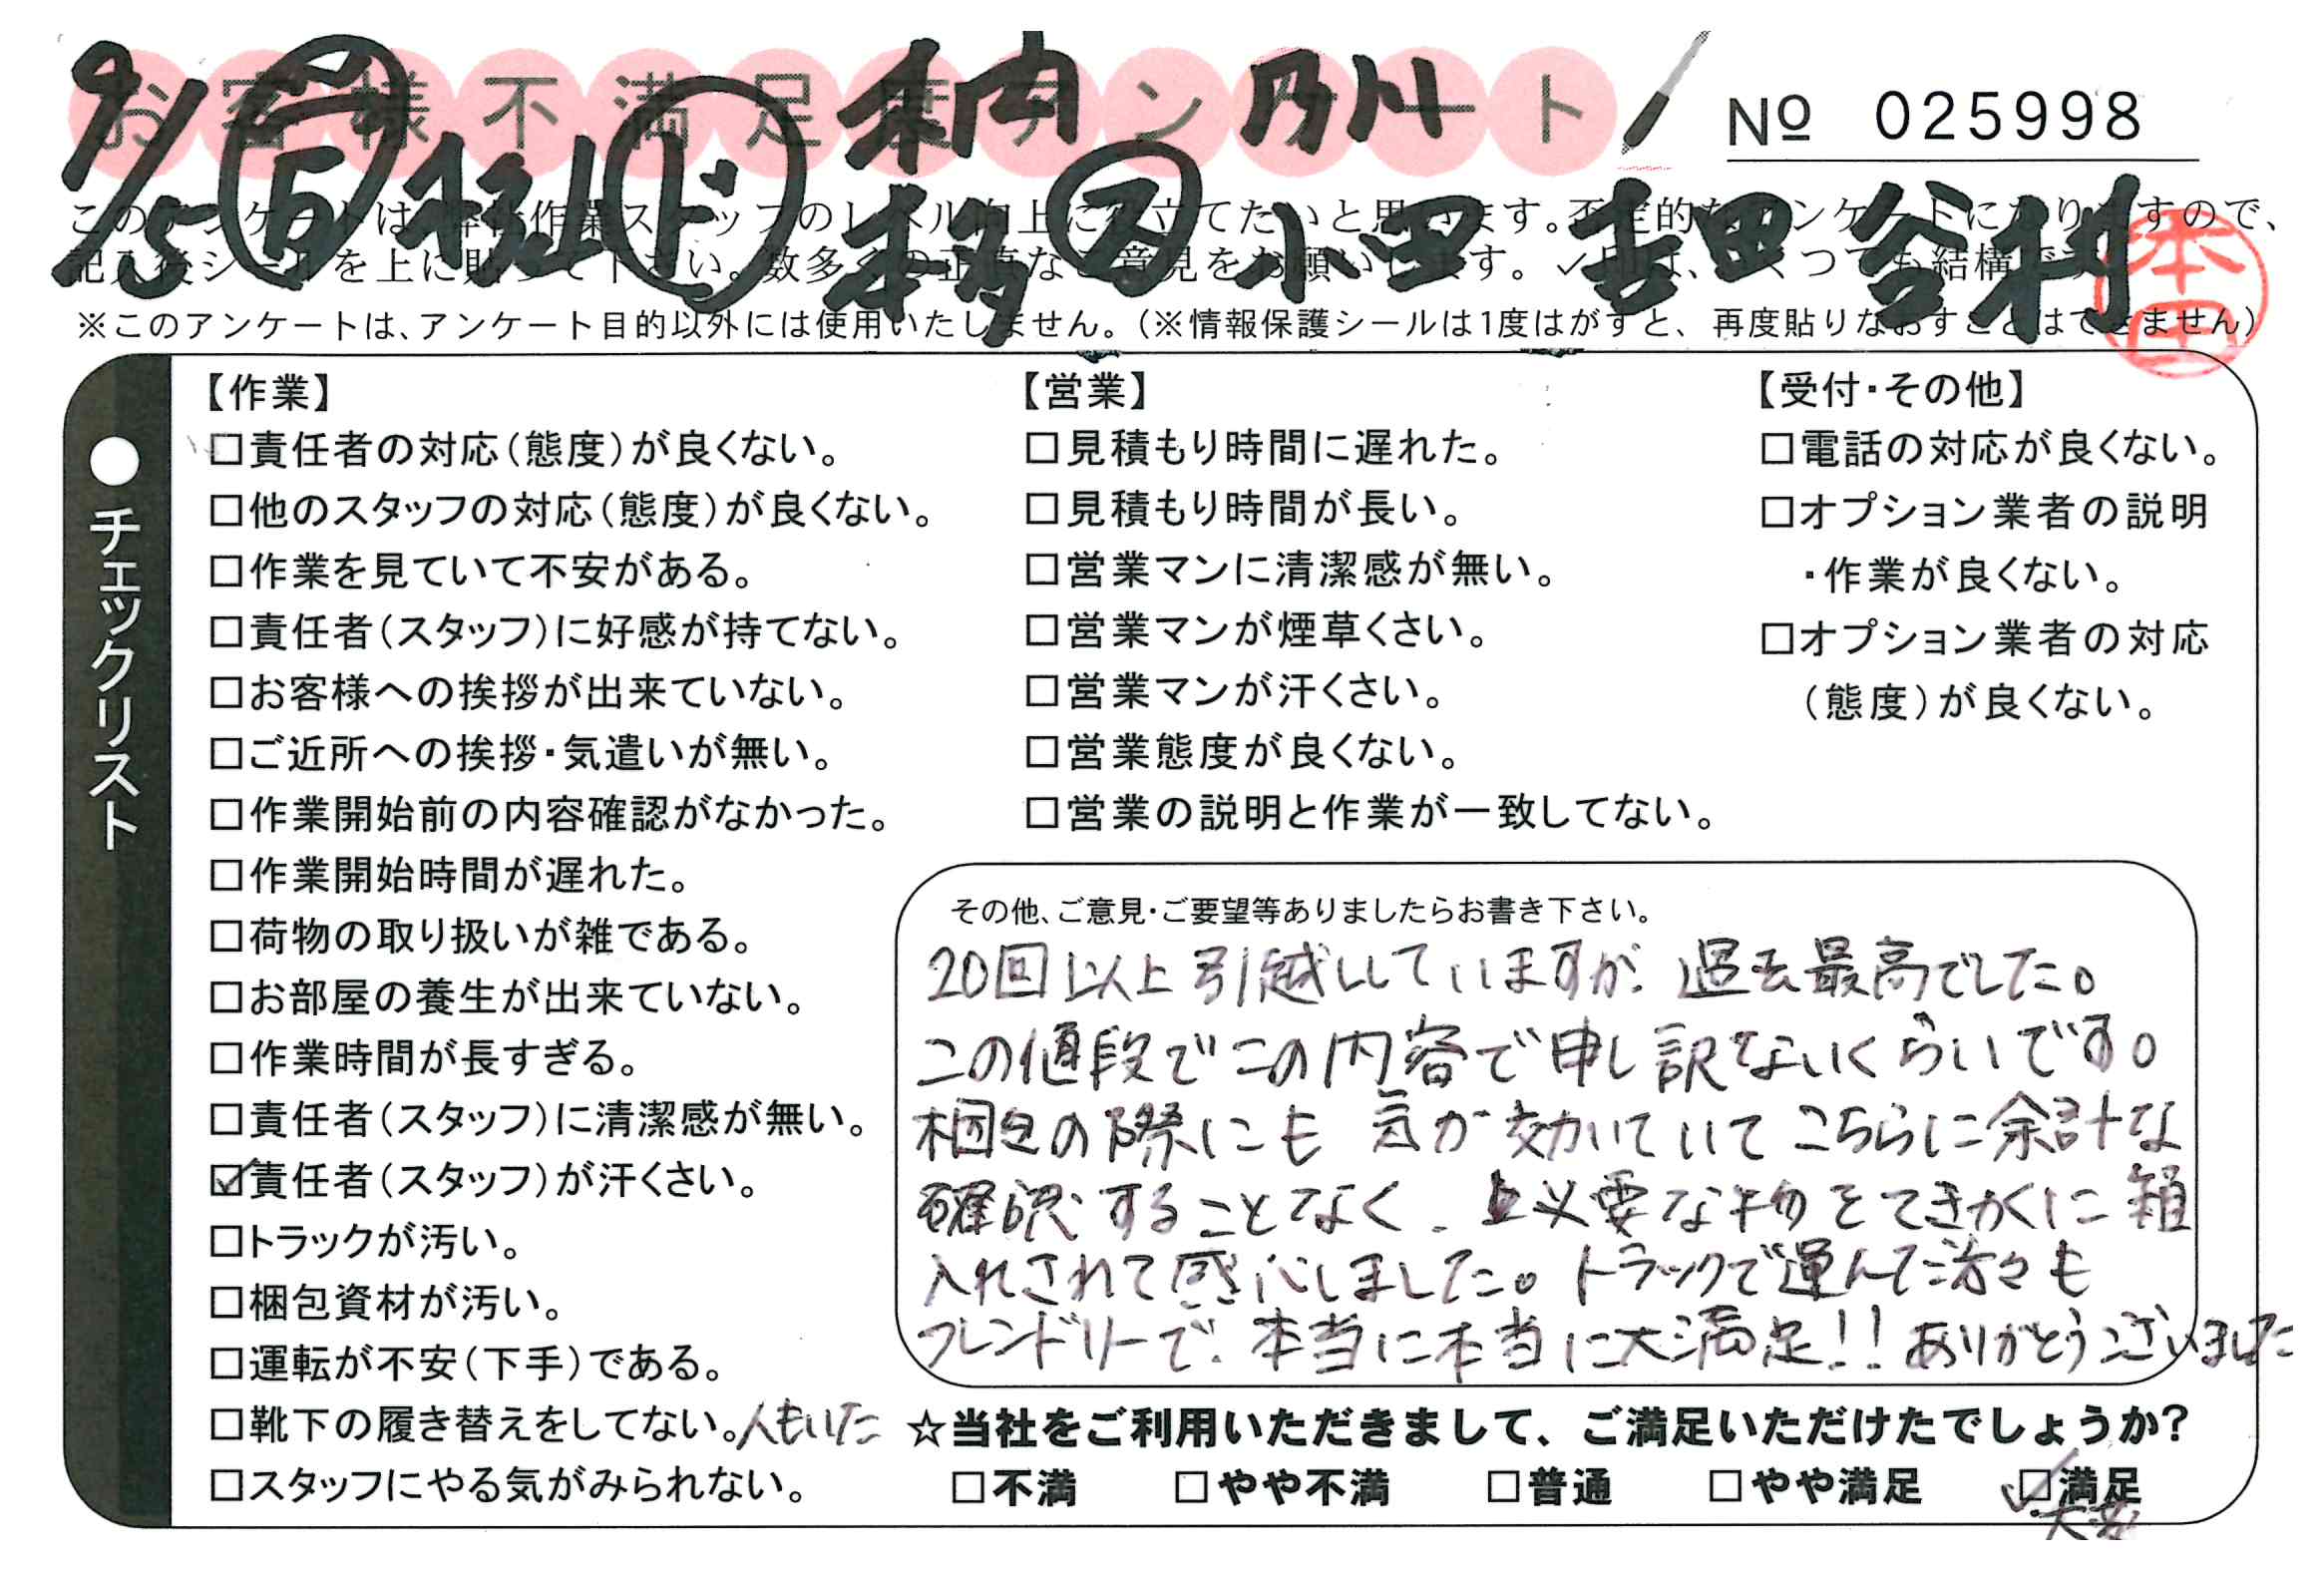 お客様不満足度アンケート
№ 025998
9/5
このアンケートは、弊社作業スタッフのレベル向上に役立てたいと思います。否定的なアンケートになりますので、
記入後シールを上に貼って下さい。数多くの正直なご意見をお願いします。✓印は、いくつでも結構です。
小田 吉田
本田
※このアンケートは、アンケート目的以外には使用いたしません。(※情報保護シールは1度はがすと、再度貼りなおすことはできません)
●チェックリスト
【作業】
□責任者の対応(態度)が良くない。
□他のスタッフの対応(態度)が良くない。
□作業を見ていて不安がある。
□責任者(スタッフ)に好感が持てない。
□お客様への挨拶が出来ていない。
□ご近所への挨拶・気遣いが無い。
□作業開始前の内容確認がなかった。
□作業開始時間が遅れた。
□荷物の取り扱いが雑である。
□お部屋の養生が出来ていない。
□作業時間が長すぎる。
□責任者(スタッフ)に清潔感が無い。
☑責任者(スタッフ)が汗くさい。
□トラックが汚い。
□梱包資材が汚い。
□運転が不安(下手)である。
□靴下の履き替えをしてない。人もいた
□スタッフにやる気がみられない。
【営業】
□見積もり時間に遅れた。
□見積もり時間が長い。
□営業マンに清潔感が無い。
□営業マンが煙草くさい。
□営業マンが汗くさい。
□営業態度が良くない。
□営業の説明と作業が一致してない。
【受付・その他】
□電話の対応が良くない。
□オプション業者の説明
・作業が良くない。
□オプション業者の対応
(態度)が良くない。
その他、ご意見・ご要望等ありましたらお書き下さい。
20回以上引越ししていますが、過去最高でした。
この値段でこの内容で申し訳ないくらいです。
梱包の際にも気が効いていてこちらに余計な
確認することなく、必要な物をてきかくに箱
入れされて感心しました。トラックで運んで
フレンドリーで、本当に本当に大満足!!ありがとうございました
☆当社をご利用いただきまして、ご満足いただけたでしょうか?
□不満 □やや不満 □普通 □やや満足 ☑満足
大変